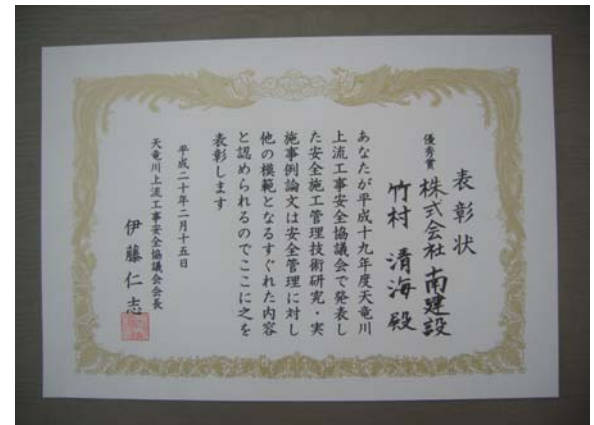 表彰状
優秀賞 株式会社 南建設
竹村 清海 殿
あなたが平成十九年度天竜川
上流工事安全協議会で発表し
た安全施工管理技術研究・実
施事例論文は安全管理に対し
他の模範となるすぐれた内容
と認められるのでここに之を
表彰します
平成二十年二月十五日
天竜川上流工事安全協議会会長
伊藤仁志